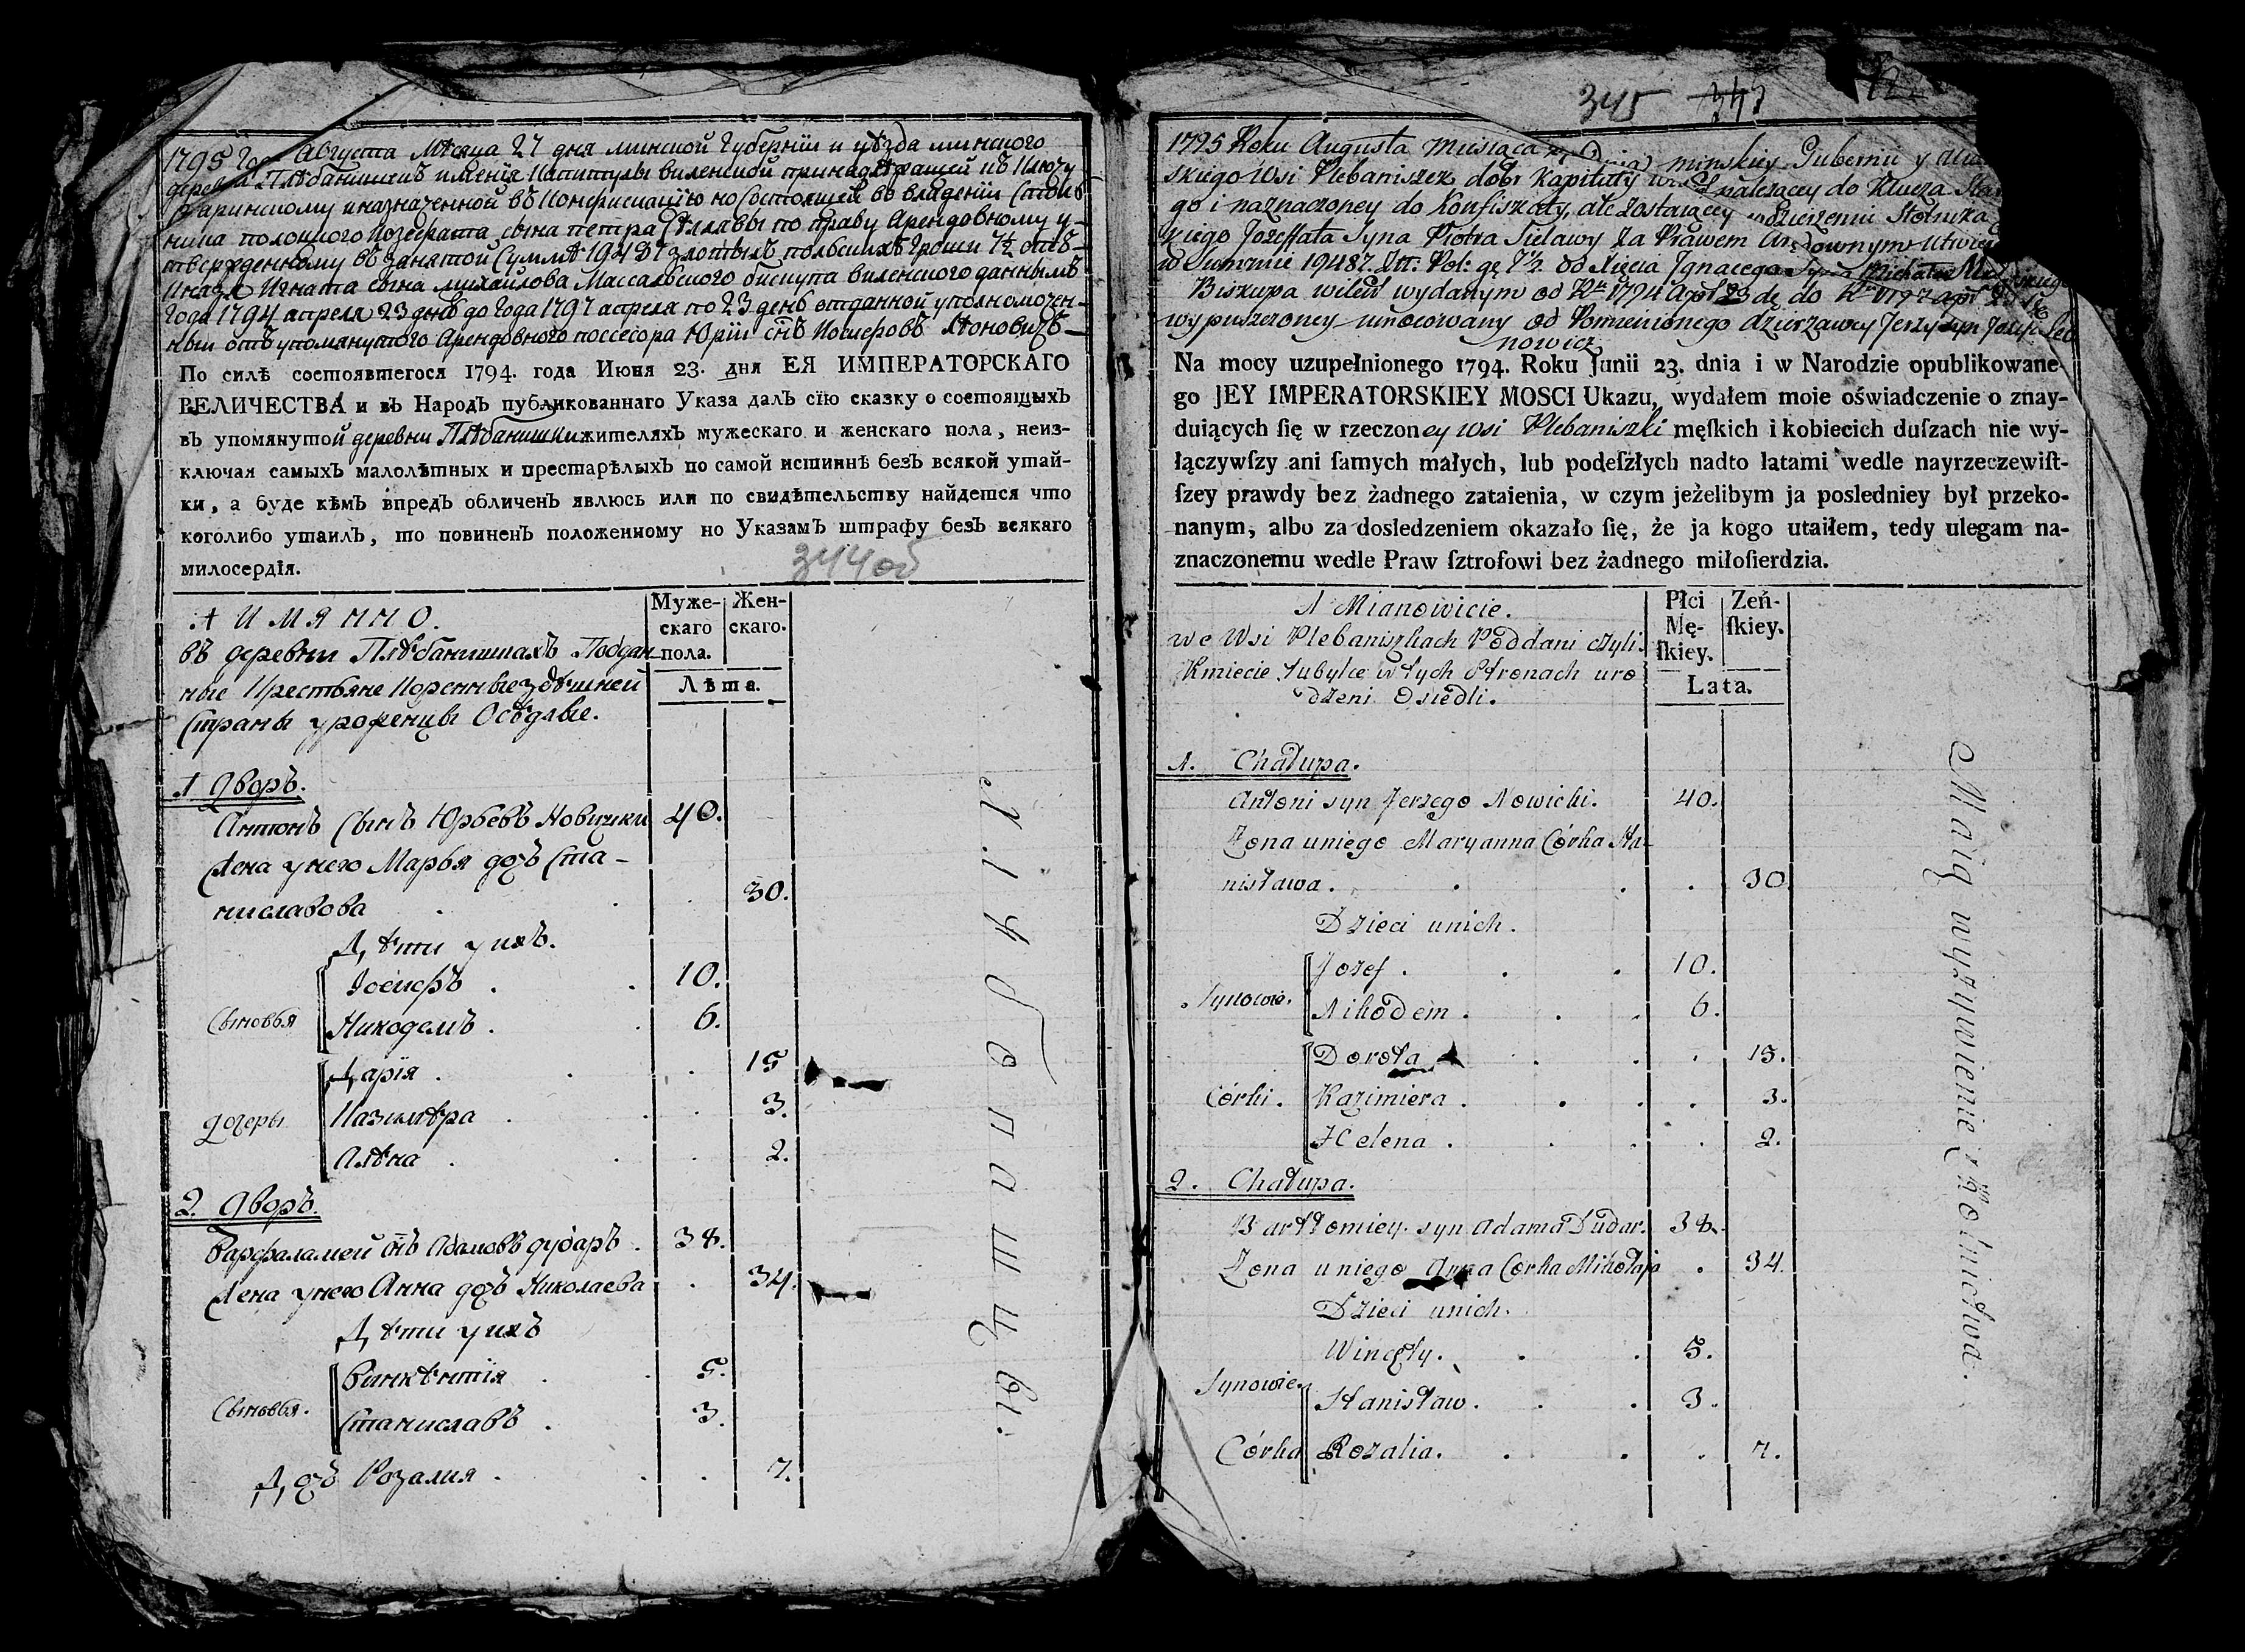 1795 Года Августа Мѣсяца 27 дня минской Губернїи и уѣзда минского
деревни Плѣбанишекъ имѣнїя Капитулы виленской принадлежащей къ Ключу
и назначенной въ Конфискацїю но Состоящей во владенїи Столь
ника полоцкого Иозефата сына петра Сѣлявы по праву Арендовному у-
твержденному во занятой Суммѣ 19487 злотыхъ польскихъ Гроши 7½ отъ
Князя Игната сына михайлова Массальского бискупа виленского даннымъ
Года 1794 апреля 23 дня до Года 1797 апреля по 23 день отданной уполномочен-
ный отъ упомянутого Арендовного поссесора Юрїй снъ Иосифовъ Леоновичъ
По силѣ состоявшегося 1794. года Июня 23. дня ЕЯ ИМПЕРАТОРСКАГО
ВЕЛИЧЕСТВА и въ Народъ публикованнаго Указа далъ сїю сказку о состоящыхъ
въ упомянутой деревни Плѣбанишки жителяхъ мужескаго и женскаго пола, неиз-
ключая самыхъ малолѣтныхъ и престарѣлыхъ по самой истиннѣ безъ всякой утай-
ки, а буде кѣмъ впредъ обличенъ явлюсь или по свидѣтельству найдется что
коголибо утаилъ, то повиненъ положенному по Указамъ штрафу безъ всякаго
милосердїя.
344об
А ИМЯННО.
въ деревни Плѣбанишкахъ Поддан-
ные Крестьяне Коренные здѣшней
Страны уроженцы Осѣдлые.
Муже-
скаго
пола.
Жен-
скаго.
Лѣта.
1 дворъ.
Антонъ Сынъ Юрьевъ Новицки 40.
Жена у него Марья дочь Ста-
ниславова . . . 30.
Дѣти ихъ.
Іосифъ . . 10.
Сыновья Никодемъ . . 6.
Дарїя . . . 15
дочеры Казимѣра . . . 3.
Алѣна . . . 2.
2. дворъ.
Варфаламей снъ Адамовъ дударъ . 38.
Жена у него Анна дочъ Николаева . 34.
Дѣти у ихъ
Винкѣнтїя . . 5.
Сыновья. Станиславъ . 3.
Дочь Розалия . . . 7.
345
1795 Roku Augusta Miesiąca Dnia minskiey Gubernii y
skiego Wsi Plebaniszek dobr Kapituły należącey do Klucza
go i naznaczoney do Konfiskaty, ale zostaiącey w Dzierżeniu Stolnika
kiego Jozeffata Syna Piotra Sielawy za Prawem Arędownym
w Summie 19487. Złł: Pol: gę 7½ od Xięcia Jgnacego Syna Michała
Biskupa wileń wydanym od Rku 1794 Apr 23 de do Rku 1797 apr 23
wypuszczoney umocowany od Pomienionego dzierżawcy Jerzy syn Jozefa Leo
nowicz
Na mocy uzupełnionego 1794. Roku Junii 23. dnia i w Narodzie opublikowane-
go JEY IMPERATORSKIEY MOSCI Ukazu, wydałem moie oświadczenie o znay-
duiących ſię w rzeczoney wsi Plebaniszki męſkich i kobiecich duſzach nie wy-
łączywſzy ani ſamych małych, lub podeſzłych nadto latami wedle nayrzeczewiſt-
ſzey prawdy bez żadnego zataienia, w czym jeżelibym ja posledniey był przeko-
nanym, albo za dosledzeniem okazało ſię, że ja kogo utaiłem, tedy ulegam na-
znaczonemu wedle Praw ſztrofowi bez żadnego miłoſierdzia.
A Mianowicie.
we Wsi Plebaniszkach Poddani czyli
Kmiecie tubylce w tych Stronach uro
dzeni Osiedli.
Płci
Mę-
ſkiey.
Zeń-
ſkiey.
Lata.
1. Chałupa.
Antoni syn Jerzego Nowicki. 40.
Zona uniego Maryanna Córka Sta-
nisława. . . . 30.
Dzieci unich.
Jozef . . . 10.
Synowie. Nikodem . . . 6.
Dorota . . . 15.
Córki. Kazimiera . . . . 3.
Helena . . . . 2.
2. Chałupa.
Bartłomiey syn Adama Dudar. 38.
Zona uniego Anna Córka Mikołaja . 34.
Dzieci unich.
Wincęty. . . 5.
Synowie. Stanisław. . . 3.
Córka Rozalia. . . . 7.
Maią wyżywienie z Rolnictwa.